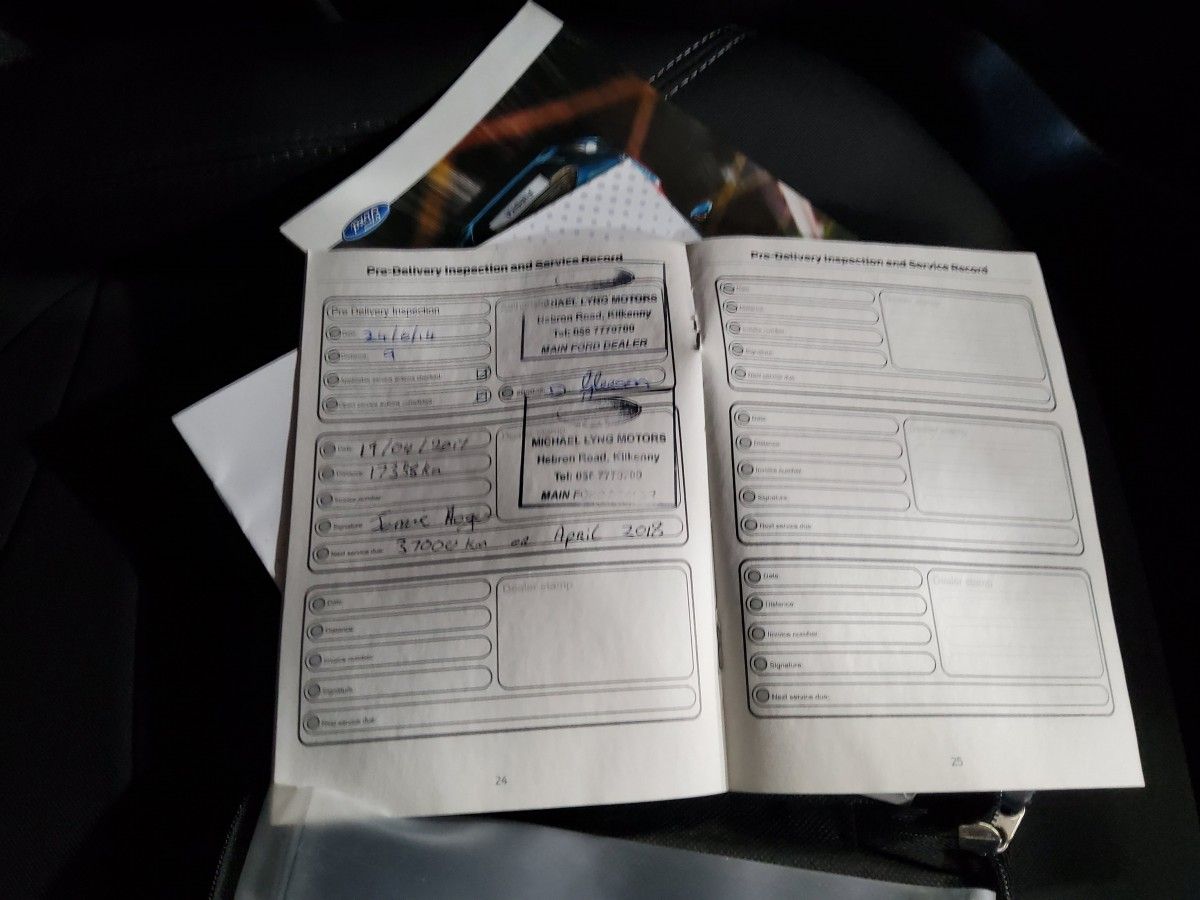 Pre-Delivery Inspection and Service Record
Pre Delivery Inspection
Date
24/6/14
Distance
9
MICHAEL LYNG MOTORS
Hebron Road, Kilkenny
Tel: 056 7779700
MAIN FORD DEALER
Date
19/04/2017
Distance
17398km
Invoice number
Signature
Next service due
37000 km or April 2018
MICHAEL LYNG MOTORS
Hebron Road, Kilkenny
MAIN
Date
Distance
Invoice number
Signature
Next service due
Dealer stamp
24
Pre-Delivery Inspection and Service Record
Date
Distance
Invoice number
Signature
Next service due
Date
Distance
Invoice number
Signature
Next service due
Date
Distance
Invoice number
Signature
Next service due
Dealer stamp
25